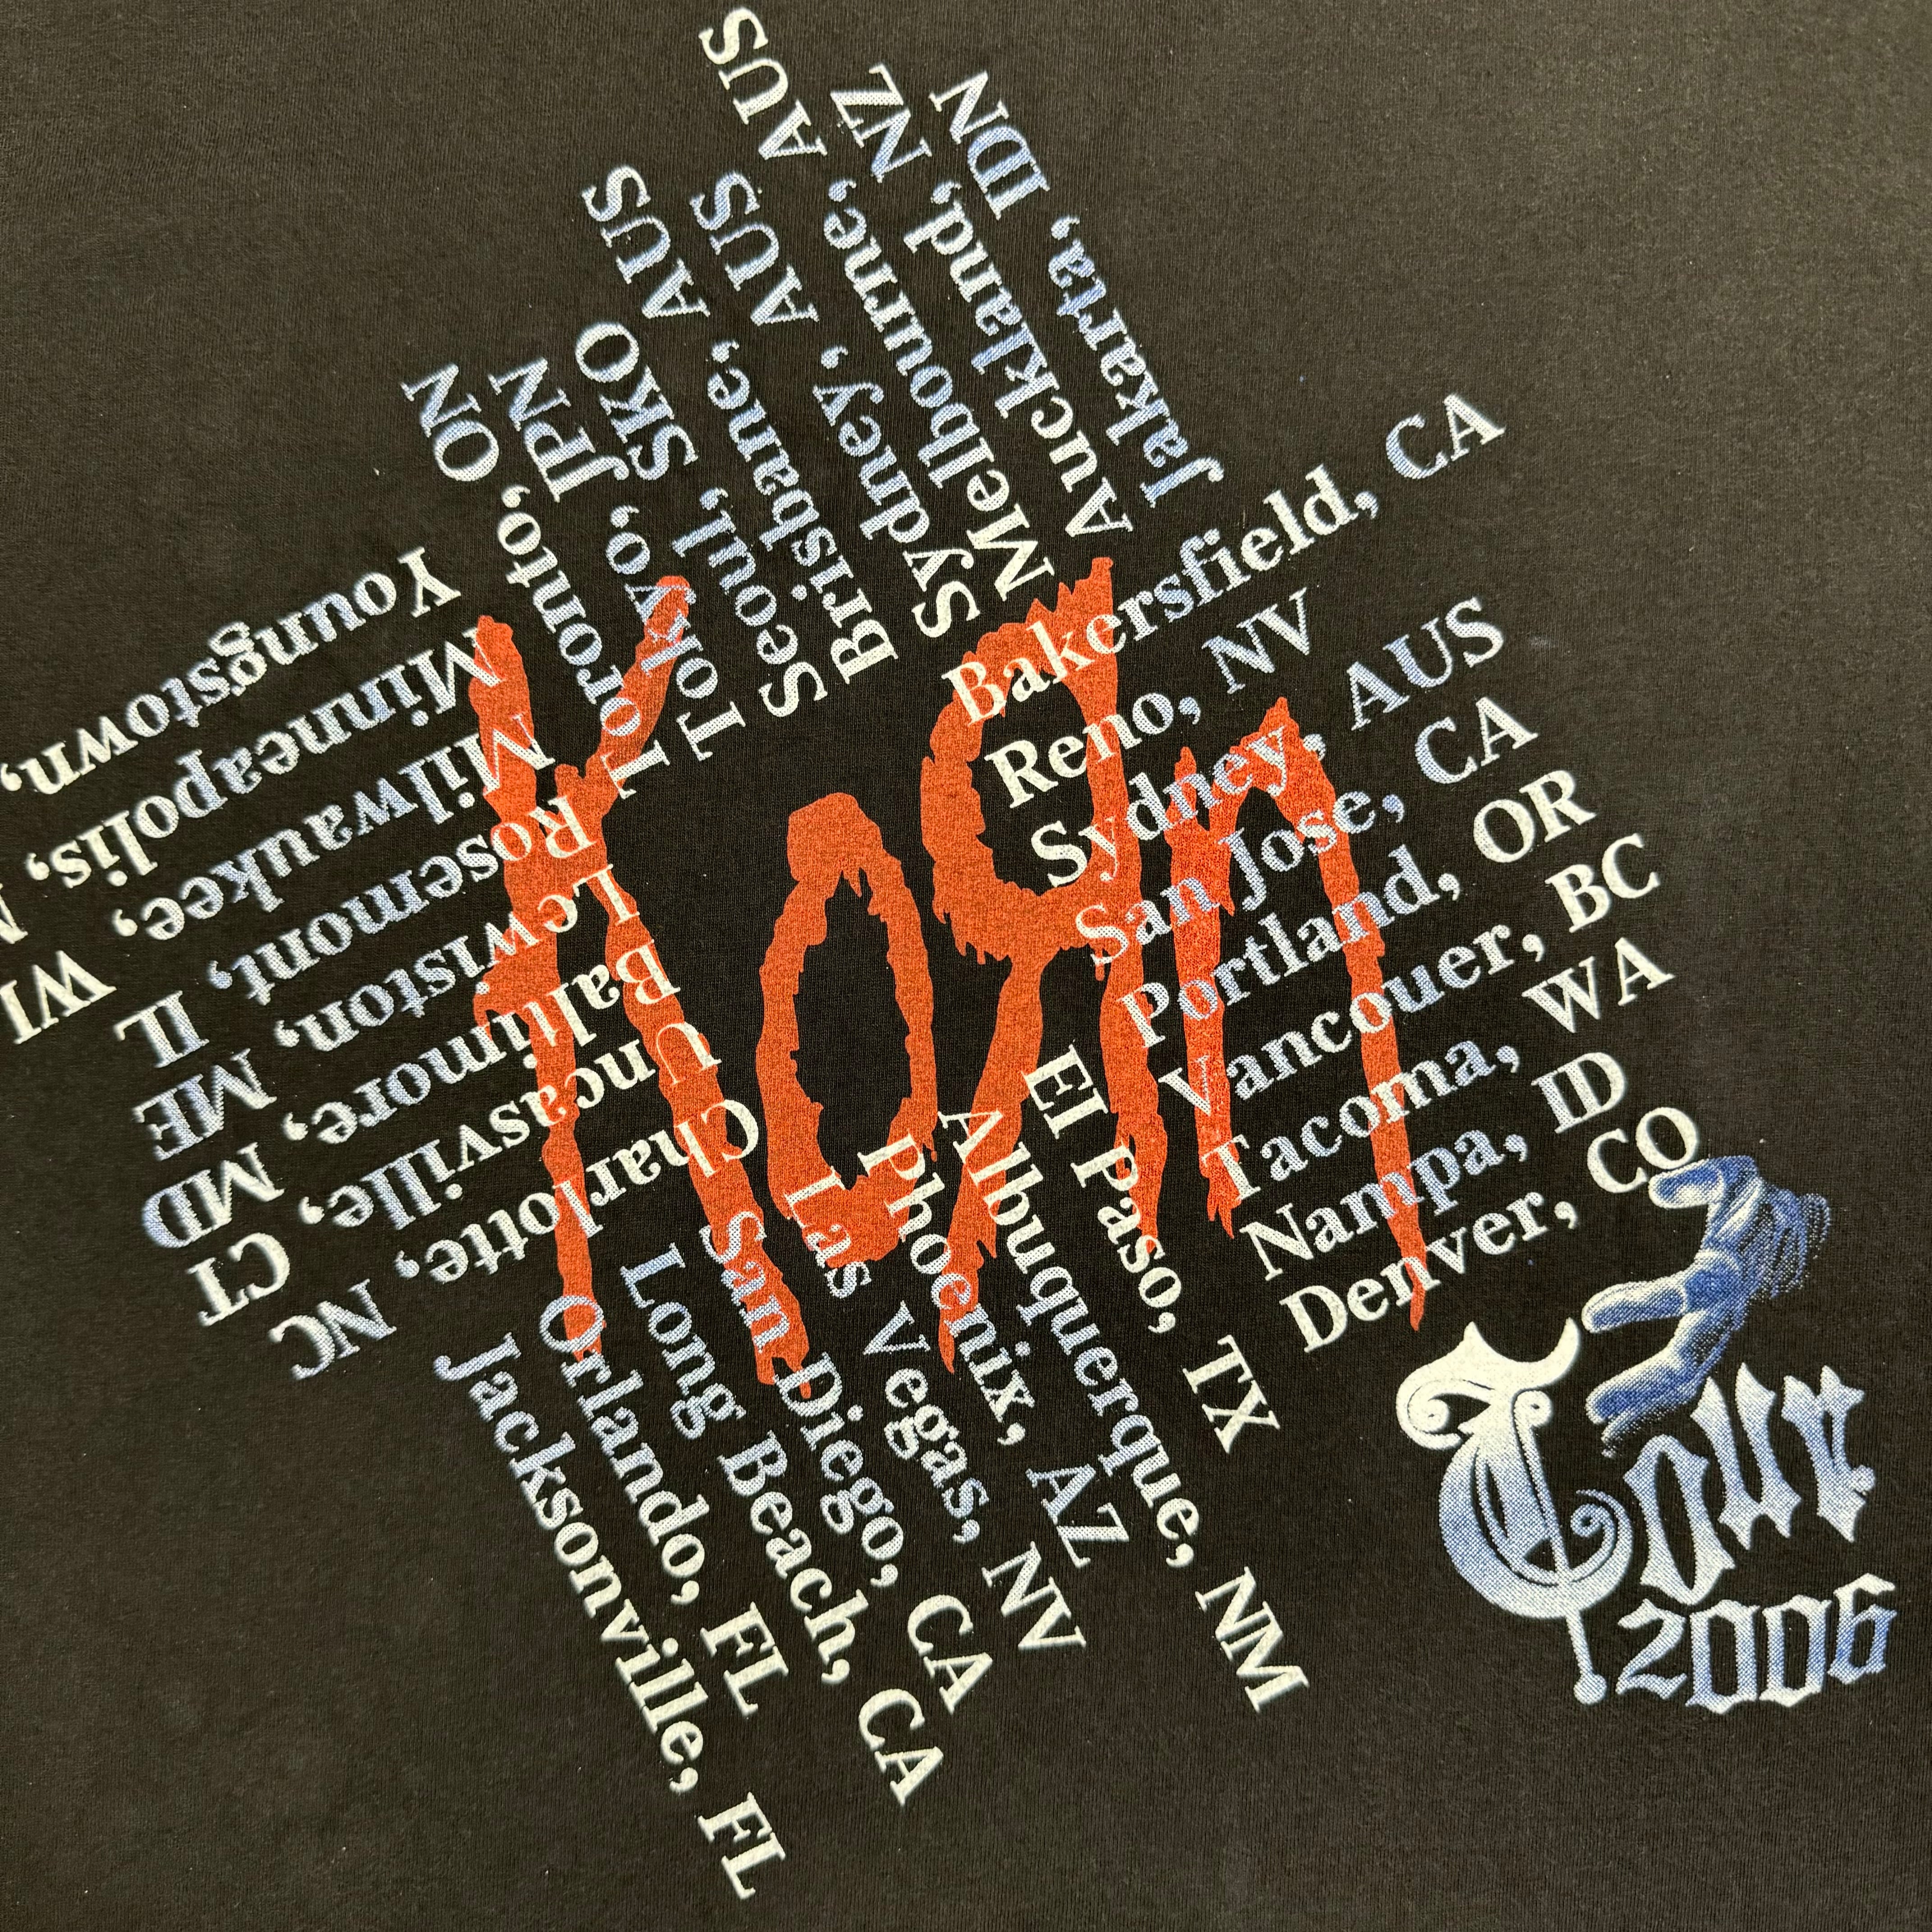 KoRn
Bakersfield, CA
Reno, NV
Sydney, AUS
San Jose, CA
Portland, OR
Vancouer, BC
Tacoma, WA
Nampa, ID
Denver, CO
El Paso, TX
Albuquerque, NM
Phoenix, AZ
Las Vegas, NV
San Diego, CA
Long Beach, CA
Orlando, FL
Jacksonville, FL
Charlotte, NC
Uncasville, CT
Baltimore, MD
Lewiston, ME
Rosemont, IL
Milwaukee, WI
Minneapolis,
Youngstown,
Toronto, ON
Tokyo, JPN
Seoul, SKO
Brisbane, AUS
Sydney, AUS
Melbourne, AUS
Auckland, NZ
Jakarta, IDN
Tour
2006